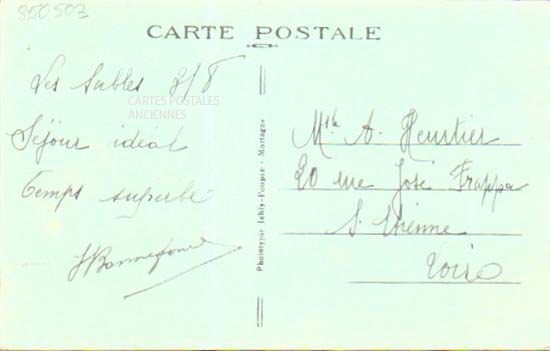 850503
CARTE POSTALE
Les Sables 2/8
CARTES POSTALES
ANCIENNES
Séjour idéal
Temps superbe
Phototypie Jehly-Poupin - Mortagne
Mlle A. Heurtier
20 rue José Frappa
St Etienne
Loire